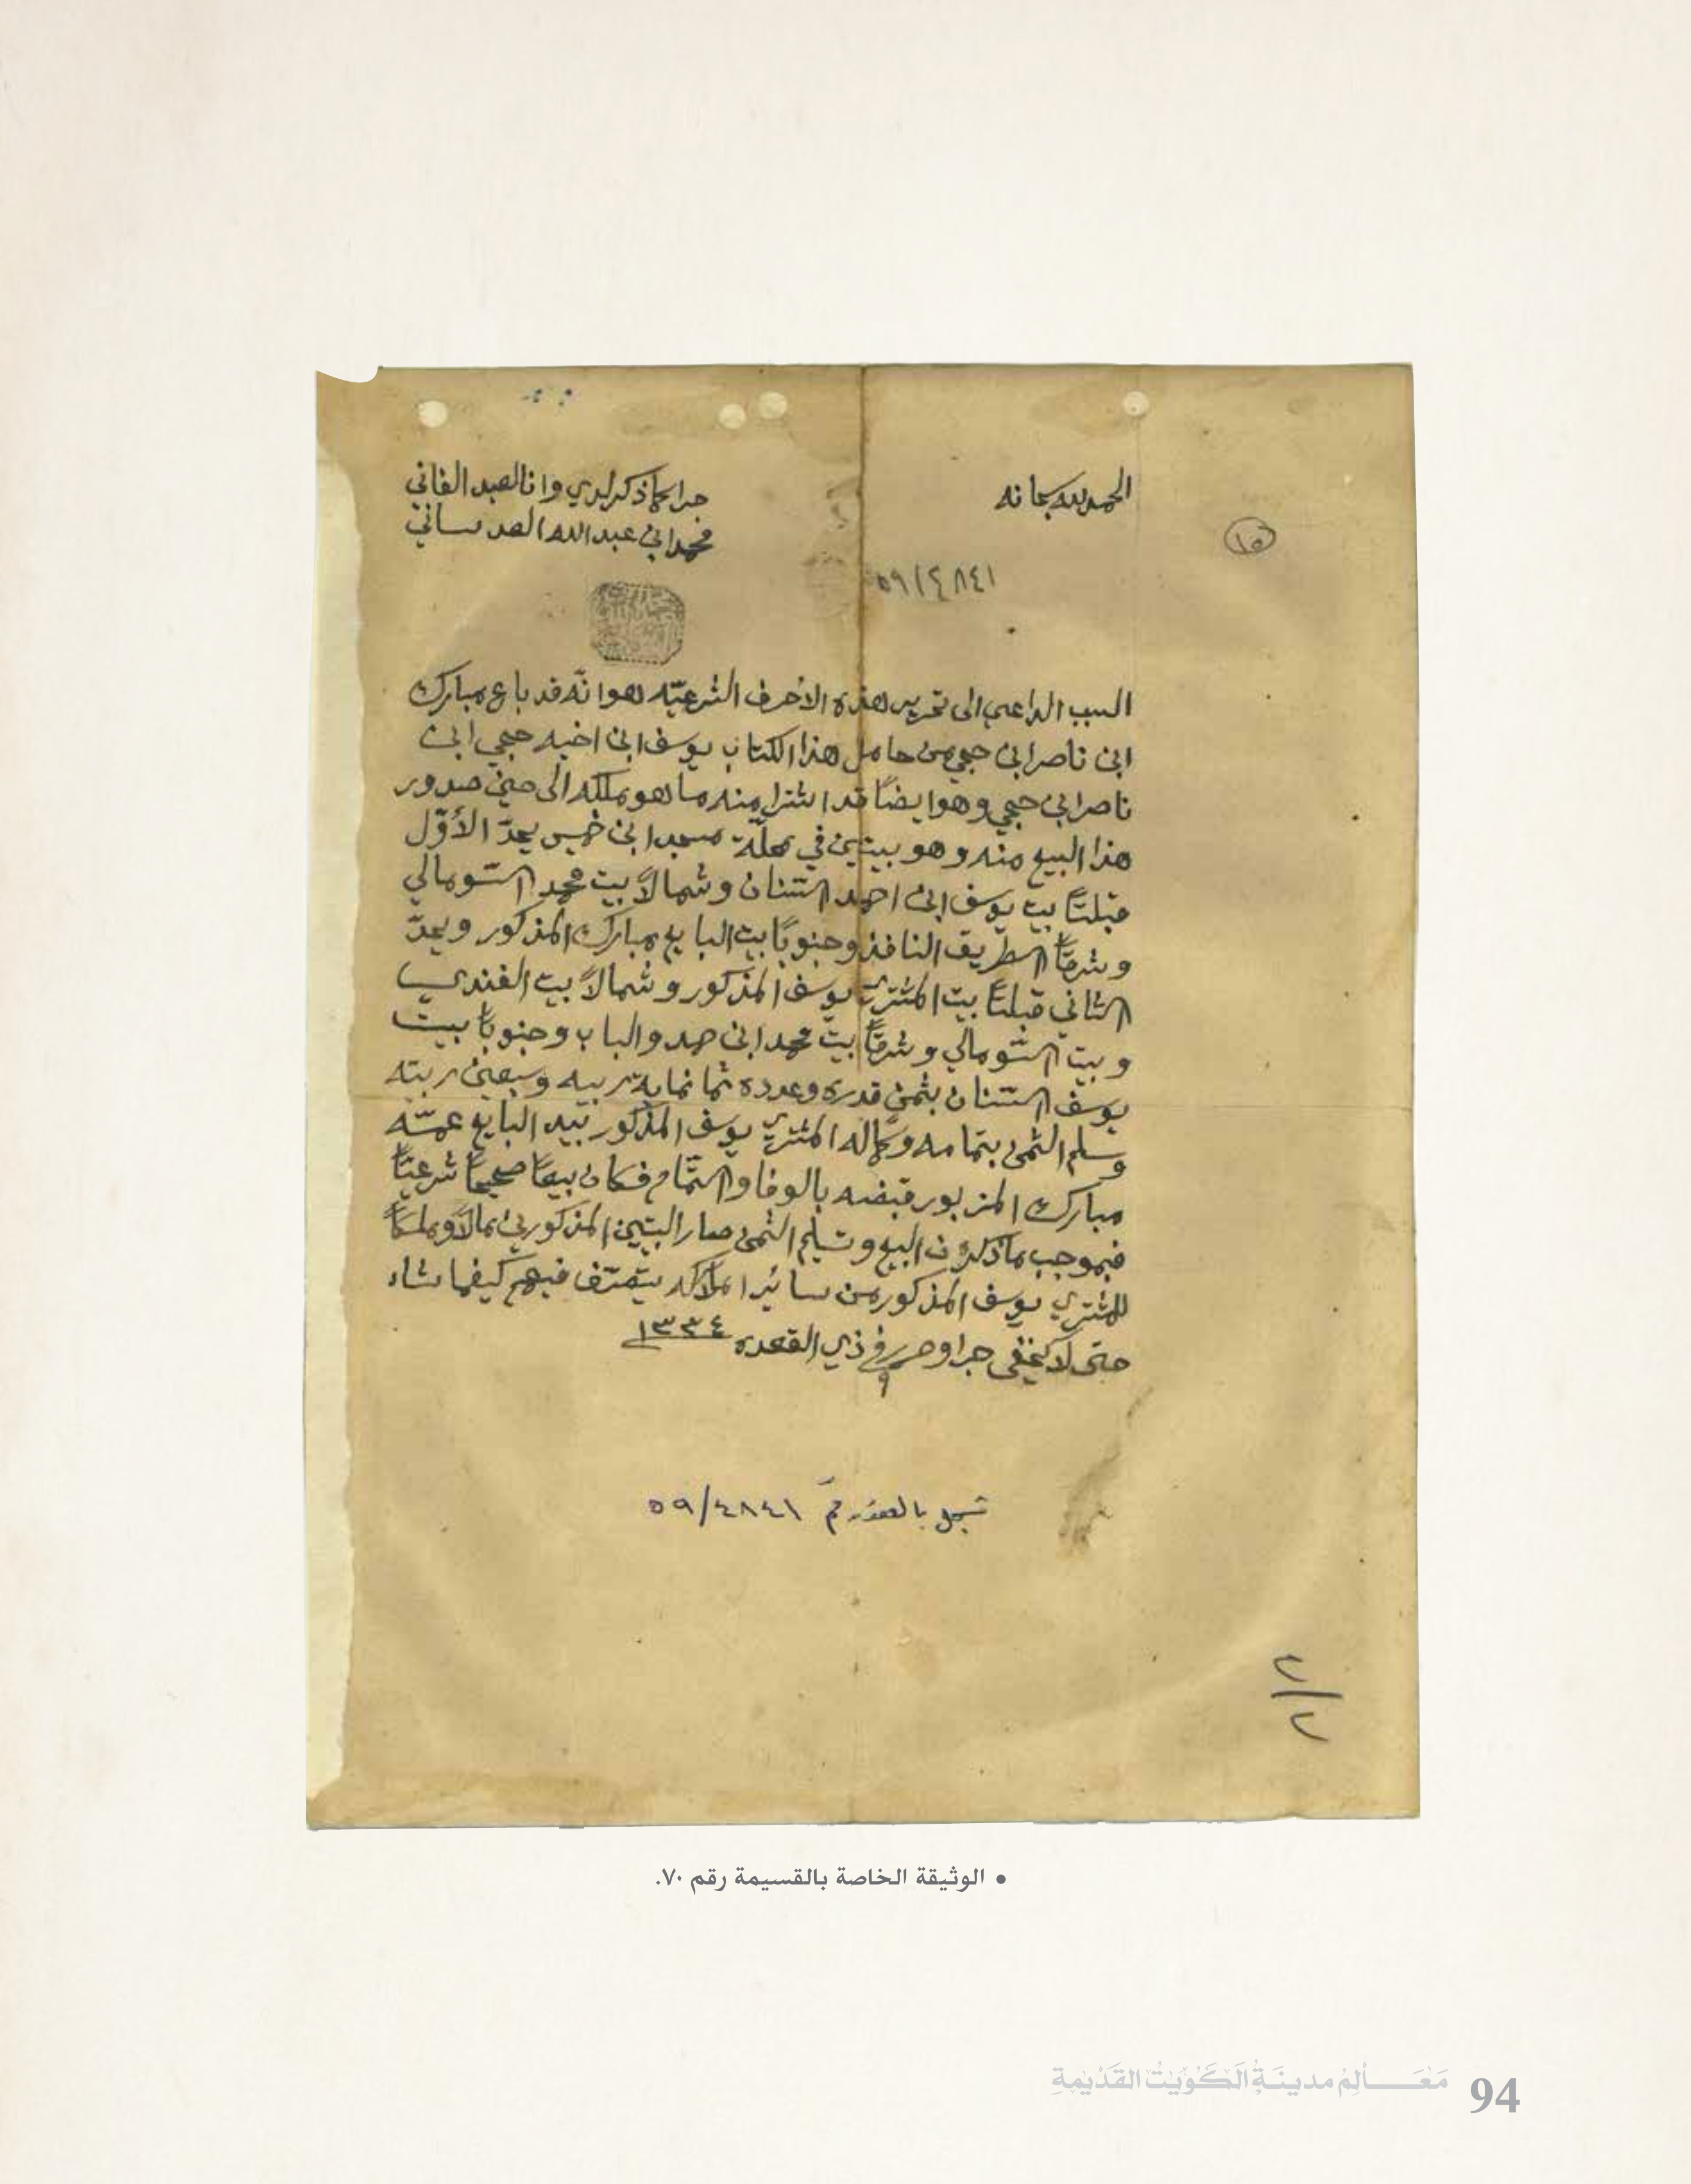 الحمد لله سبحانه
جرا كما ذكر لدي وانا العبد الفاني
محمد ابن عبدالله العدساني
١٥
٥٩/٤٨٤١
السبب الداعي الى تحرير هذه الاحرف الشرعيّه هو انّه قد باع مبارك
ابن ناصر ابن حجي من حامل هذا الكتاب يوسف ابن اخيه حجي ابن
ناصر ابن حجي وهو ايضاً قد اشترا منه ما هو ملكه الى حين صدور
هذا البيع منه وهو بيتين في محلّة مسجد ابن خميس يحدّ الأوّل
قبلتاً بيت يوسف ابن احمد السّنان وشمالاً بيت محمد السّومالي
وشرقاً الطريق النافذ وجنوباً بيت البايع مبارك المذكور ويحدّ
الثاني قبلتاً بيت المشتري يوسف المذكور وشمالاً بيت الفندي
وبيت السّومالي وشرقاً بيت محمد ابن والباب وجنوباً بيت
يوسف السّنان بثمن قدره وعدده ثمانماية ربيه وسبعين ربيّه
وسلم الثمن بتمامه وكماله المشتري يوسف المذكور بيد البايع عمّه
مبارك المزبور قبضه بالوفا والتّمام فكان بيعاً صحيحاً شرعيّاً
فبموجب ما ذكر من البيع وتسليم الثمن صار البيتين المذكورين مالاً وملكاً
للمشتري يوسف المذكور من سائر املاكه يتصرّف فيهم كيفما يشاء
حتى لا يخفى جرا وحرر في ٩ ذي القعده ١٣٣٤
سجل بالعقد رقم ٥٩/٤٨٤١
٢/٢
• الوثيقة الخاصة بالقسيمة رقم ٧٠.
مَعَـــالِمُ مدينَةِ الكُوَيْتِ القَدِيْمَةِ 94